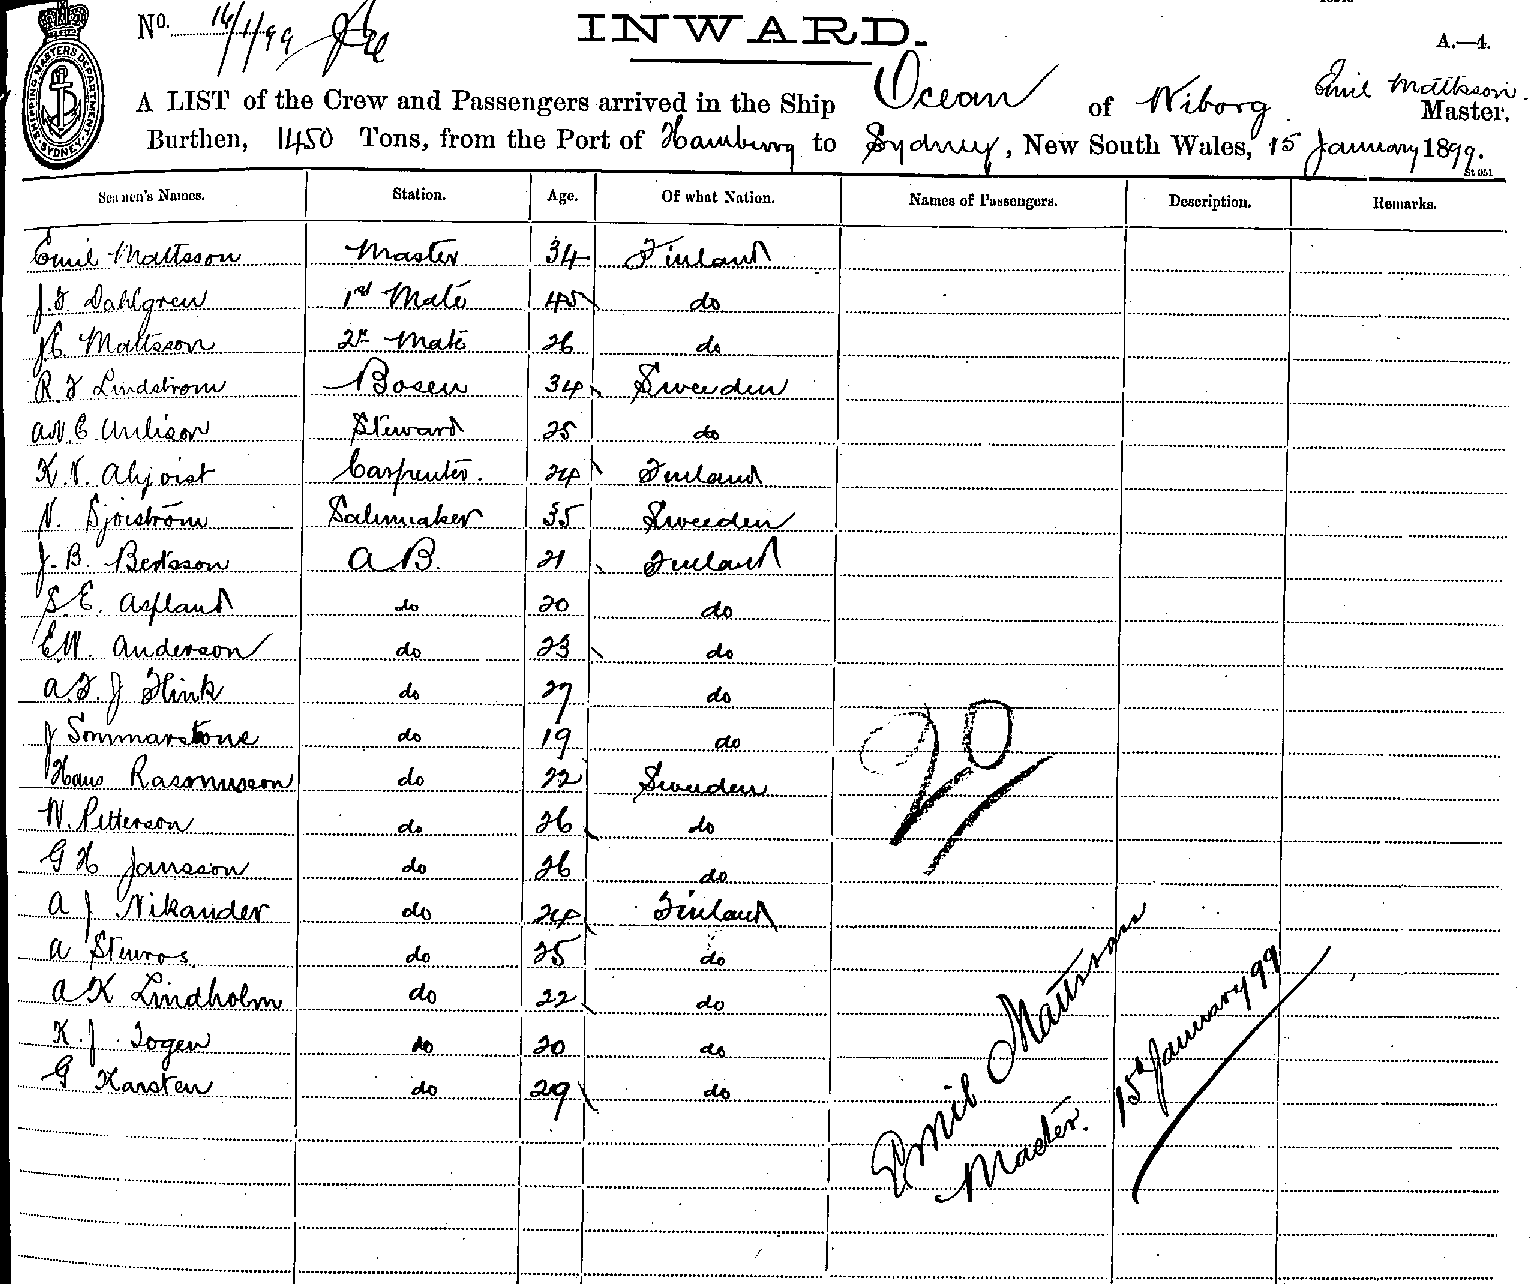 No. 16/1/99
INWARD.
A.—4.
SHIPPING MASTERS DEPARTMENT SYDNEY
A LIST of the Crew and Passengers arrived in the Ship Ocean of Wiborg Emil Mattsson Master,
Burthen, 1450 Tons, from the Port of Hamburg to Sydney, New South Wales, 15 January 1899.
St 951
Seamen's Names. Station. Age. Of what Nation. Names of Passengers. Description. Remarks.
Emil Mattsson Master 34 Finland
J. F Dahlgren 1st Mate 45 do
J E Mattsson 2d Mate 26 do
R F Lindstrom Bosen 34 Sweeden
A. V. E Steward 25 do
K. V. Carpenter. 24 Finland
V. Sjöström Salimaker 35 Sweeden
J. B. Bertsson A B. 21 Finland
S. E. Aspland do 20 do
E. W. Anderson do 23 do
A. F. J Flink do 27 do
J Sommarstone do 19 do
Hans Rasmusson do 22 Sweeden
W. Petterson do 26 do
G H Jansson do 26 do
A J Nikander do 24 Finland
A Sturos. do 25 do
A K Lindholm do 22 do
K. J. Togen do 20 do
G Karsten do 29 do
20
Emil Mattsson
Master.
15th January 99